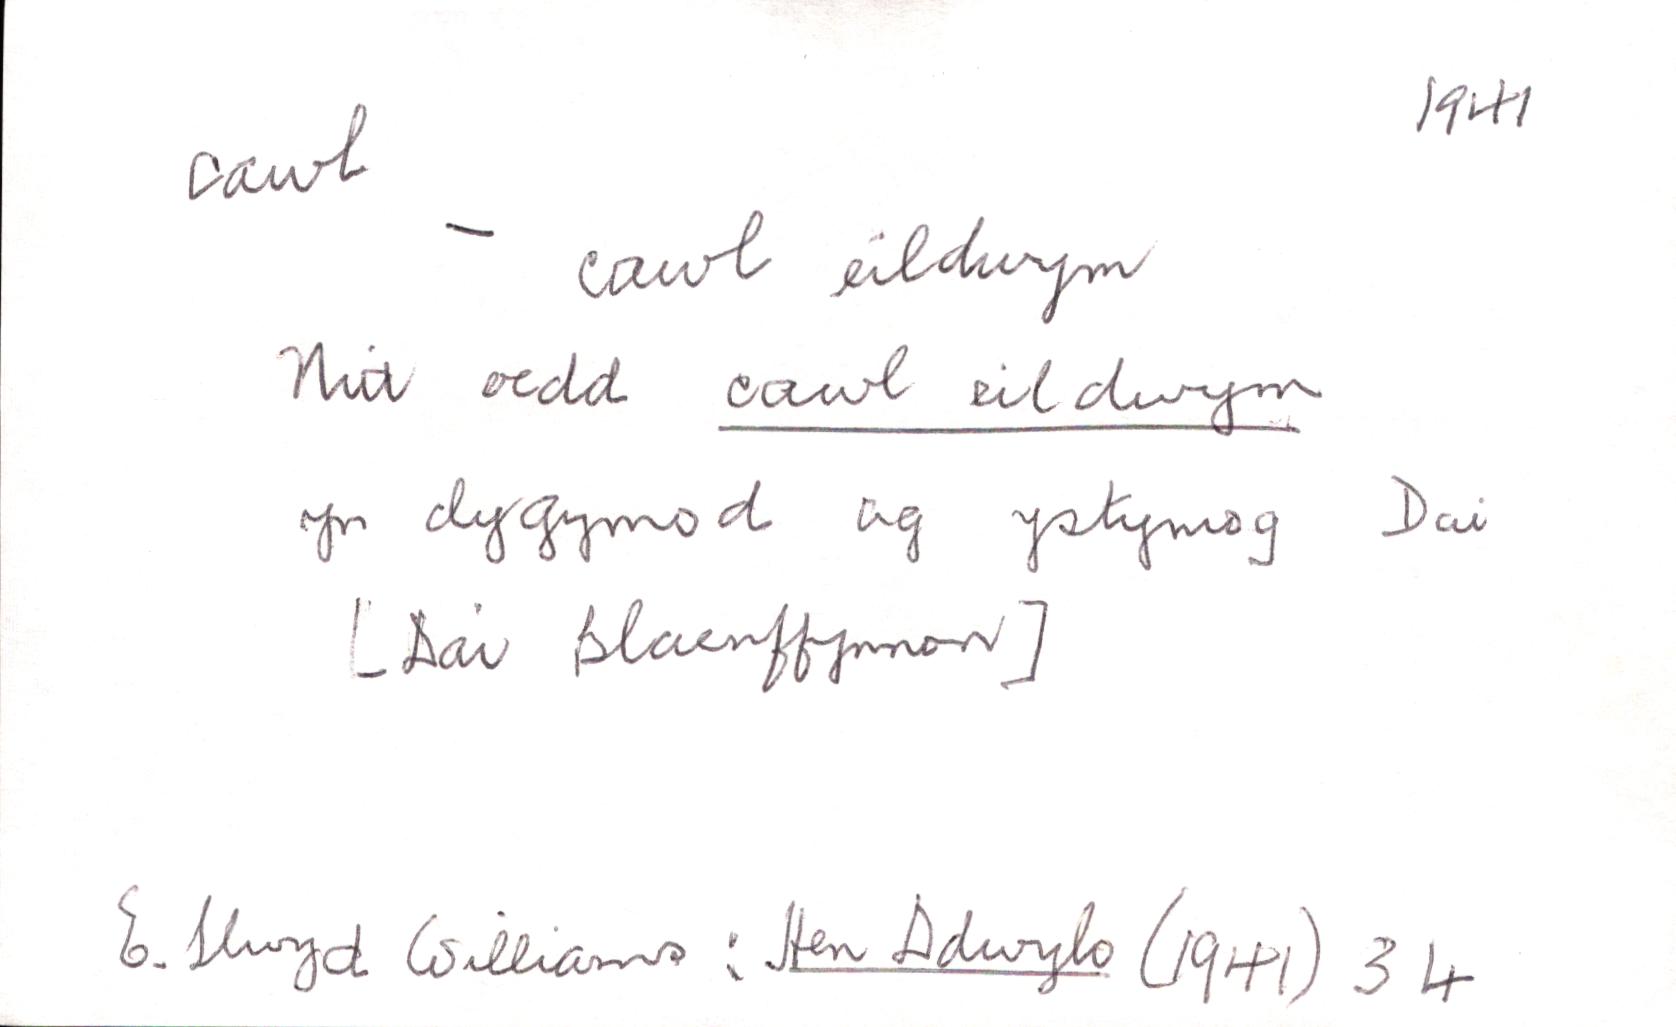 1941
cawl
– cawl eildwym
Nid oedd cawl eildwym
yn dygymod ag ystymog Dai
[Dai Blaenffynnon]
E. Llwyd Williams : Hen Ddwylo (1941) 34